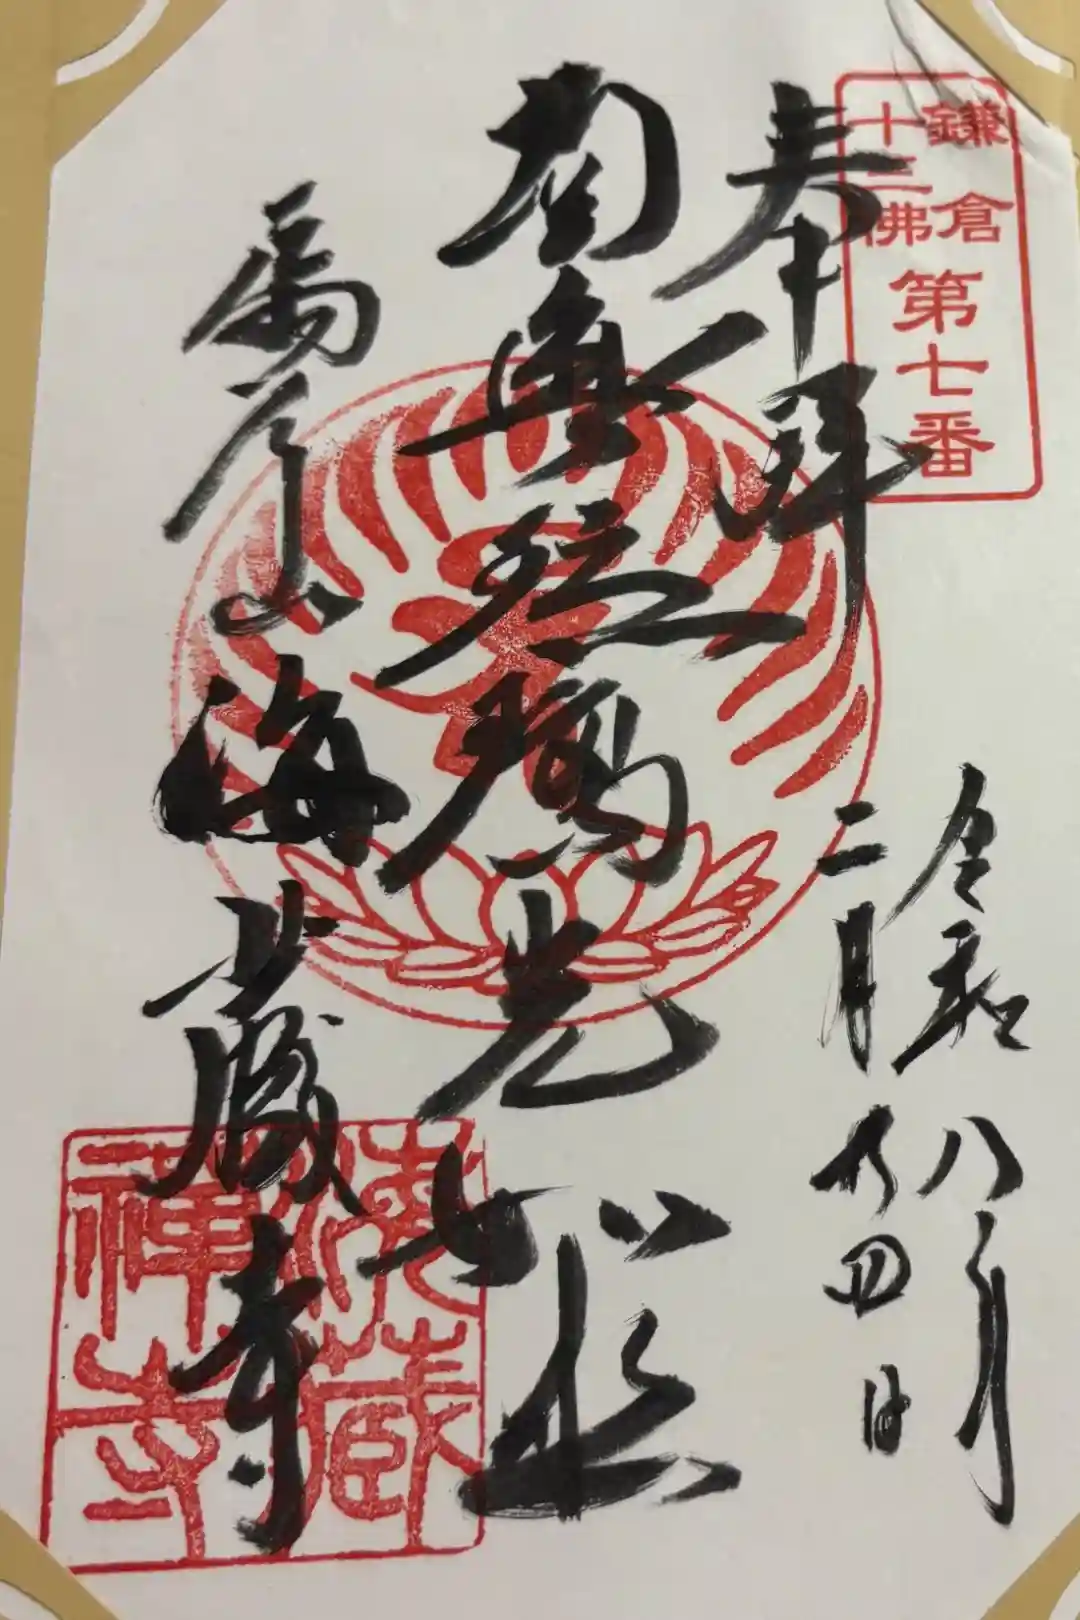 鎌倉
十三佛
第七番
奉拝
令和八年
二月廿四日
南無琉璃光如来
扇谷山海蔵寺
海藏
禪寺